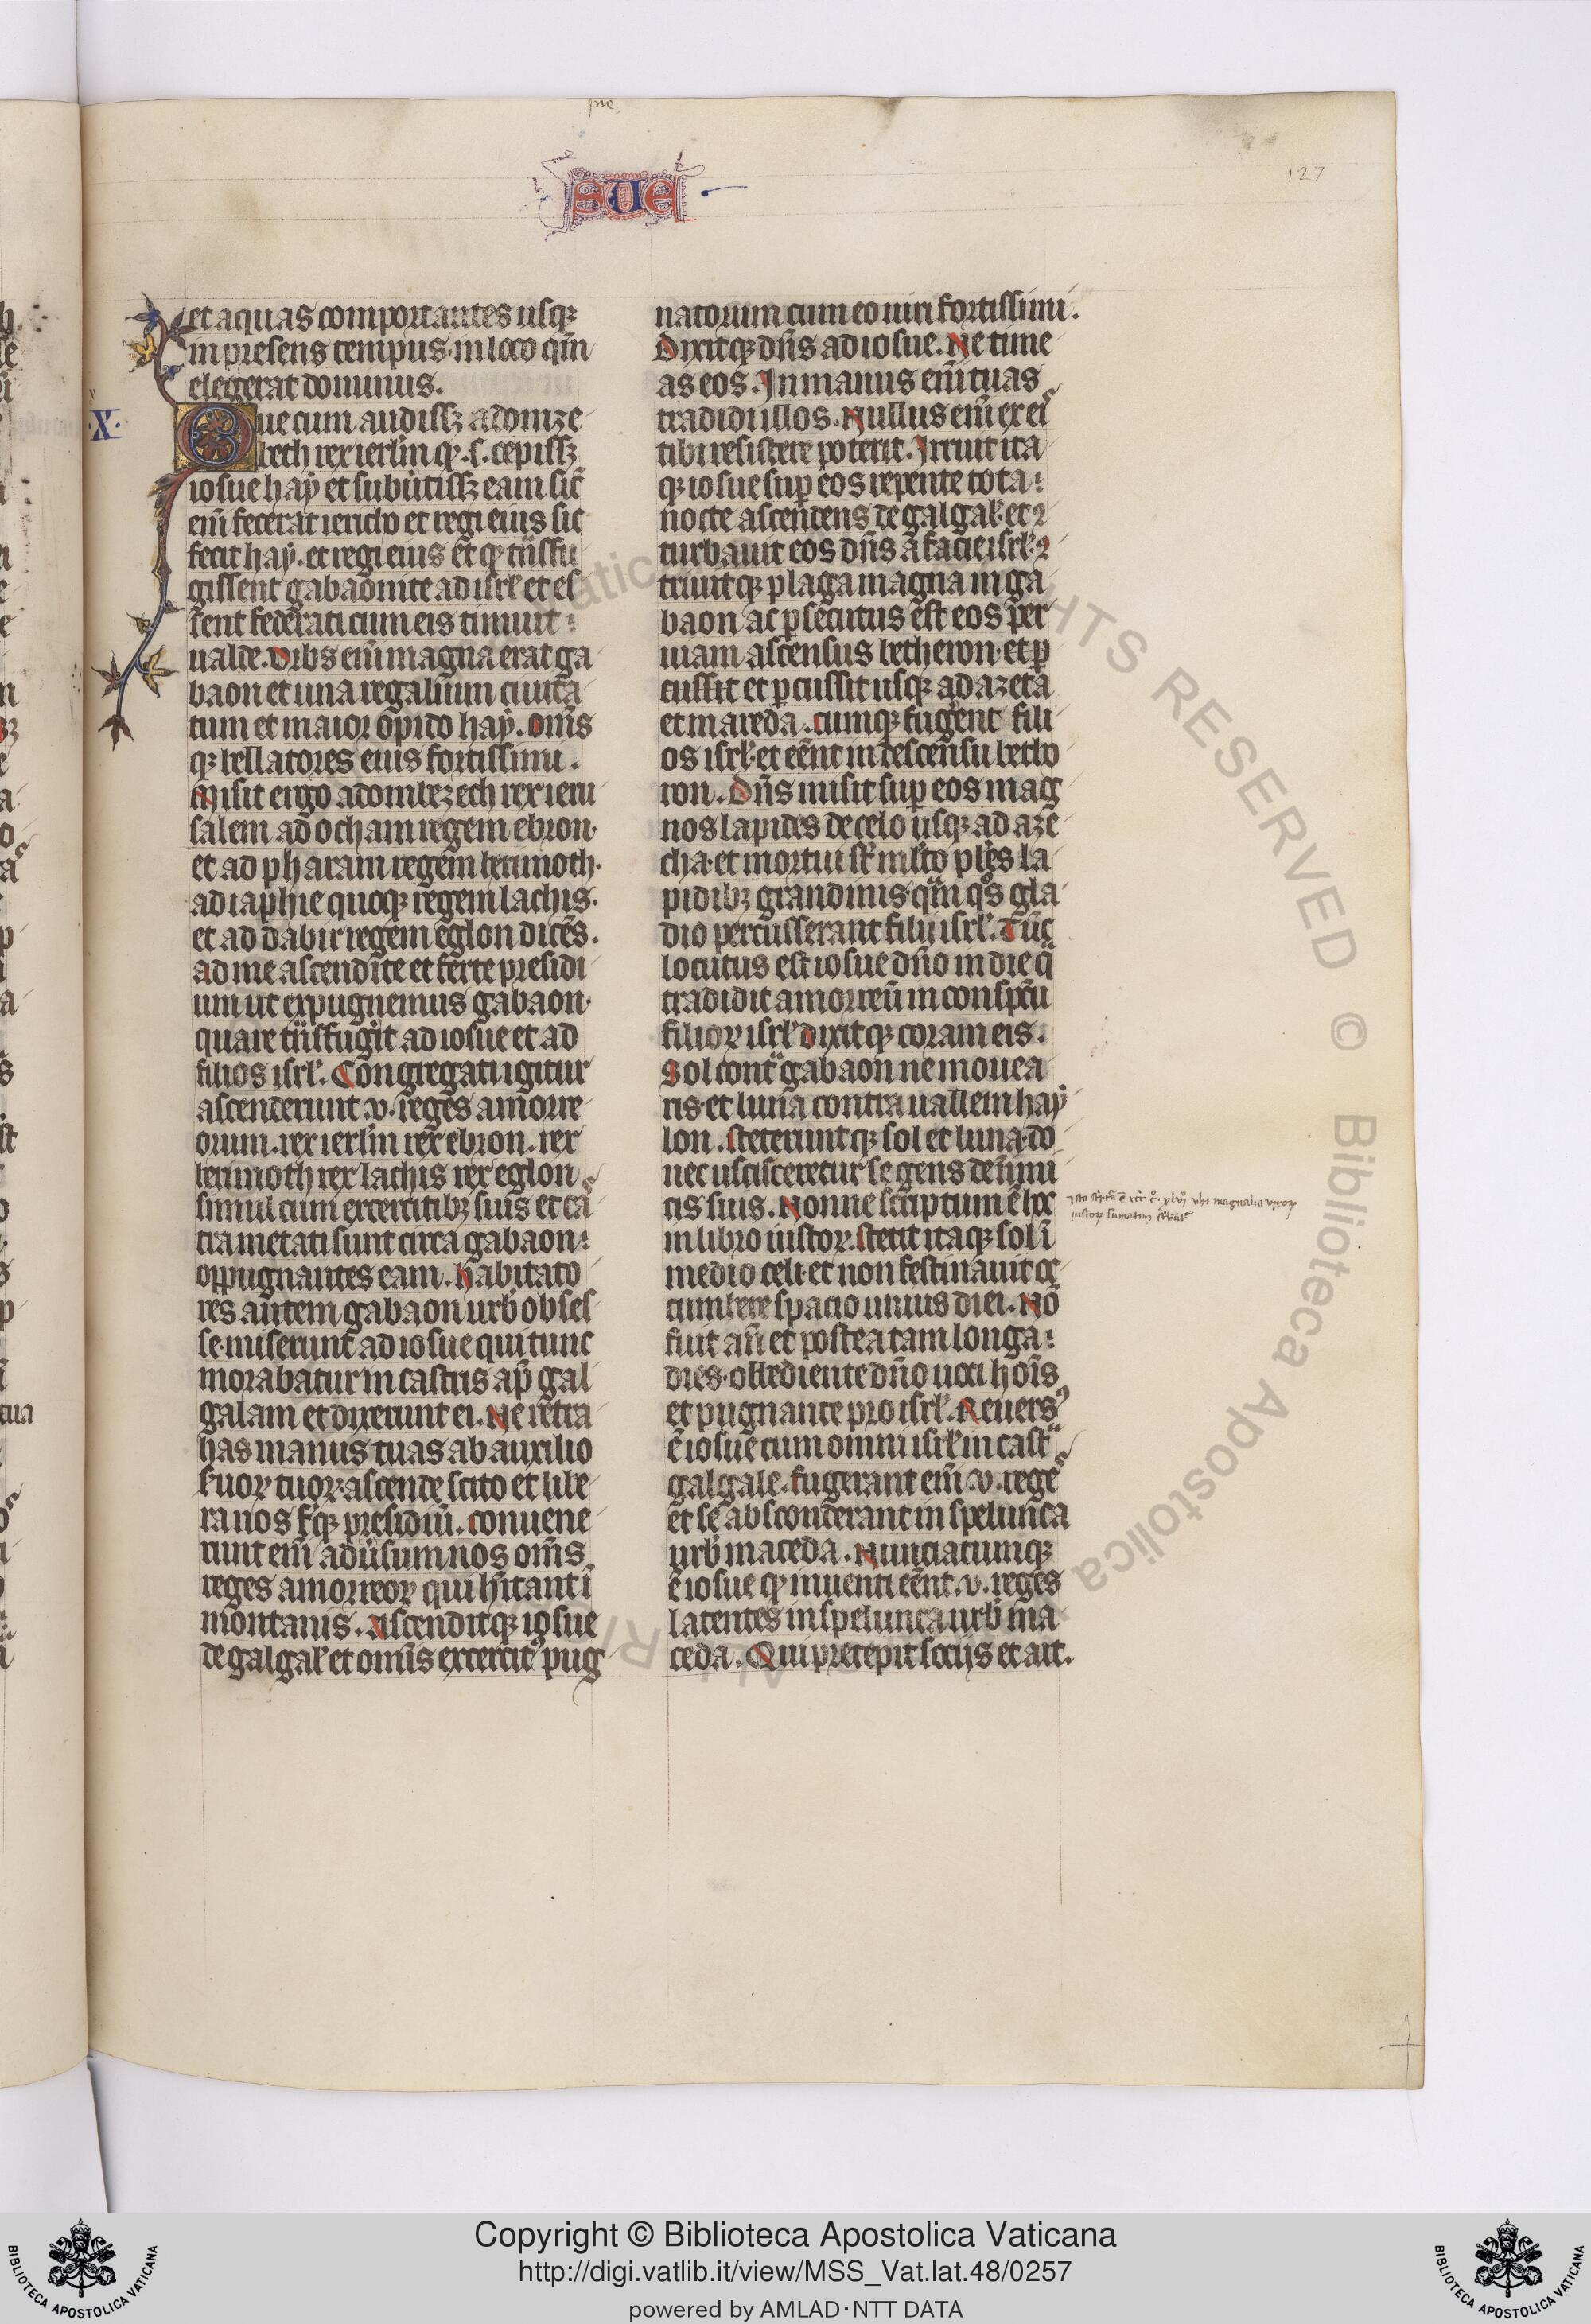 sue
127
et aquas comportantes usq3
in presens tempus in loco q̄m
elegerat dominus.
.X.
Que cum audiss3 adonize
beth rex ierl̄m q̄ .s. cepiss3
iosue haÿ et subuertiss3 eam sic̄
em̄ fecerat iericho et regi eius sic
fecit haÿ. et regi eius et q̄ t̄nsfu
gissent gabaonite ad isrl̄ et es
sent federati cum eis timuit
ualde. Urbs em̄ magna erat ga
baon et una regalium ciuita
tum et maior opido haÿ. om̄s
q3 bellatores eius fortissimi.
Misit ergo adonibezech rex ieru
salem ad ocham regem ebron.
et ad pharam regem berimoth.
ad iaphie quoq3 regem lachis.
et ad dabir regem eglon dicēs.
ad me ascendite et ferte presidi
um ut expugnemus gabaon.
quare t̄nsfugit ad iosue et ad
filios isrl̄. Congregati igitur
ascenderunt .v. reges amorre
orum. rex ierl̄m rex ebron. rex
berimoth rex lachis rex eglon
simul cum excercitib3 suis et cas
trametati sunt circa gabaon
oppugnantes eam. Habitato
res autem gabaon urb̄ obses
se. miserunt ad iosue qui tunc
morabatur in castris ap̄ gal
galam et dixerunt ei. Ne retra
has manus tuas ab auxilio
seruoꝝ tuoꝝ. ascende scito et libe
ra nos f̄q3 presidiū. conuene
runt em̄ aduersum nos om̄s
reges amorreoꝝ qui h̄itant ī
montanis. Ascenditq3 iosue
de galgal̄ et om̄is excercit⁹ pug
natorum cum eo uiri fortissimi.
Dixitq3 dn̄s ad iosue. Ne time
as eos. In manus em̄ tuas
tradidi illos. Nullus em̄ ex eis
tibi resistere poterit. Irruit ita
q3 iosue sup̄ eos repente tota
nocte ascendens de galgal̄. et 9
turbauit eos dn̄s a facie isrl̄. 9
triuitq3 plaga magna in ga
baon ac ꝑsecutus est eos per
uiam ascensus betheron. et ꝑ
cussit et ꝑcussit usq3 ad azeta
et maceda. cumq3 fugent fili
os isrl̄. et eēnt in descensu betho
ron. Dn̄s misit sup̄ eos mag
nos lapides de celo usq3 ad aze
cha. et mortui st̄ ml̄to pl̄es la
pidib3 grandinis. q̄m q°s gla
dio percusserant filij isrl̄. Tūc
locutus est iosue dn̄o in die q̄
tradidit amorreū in conspc̄u
filioꝝ isrl̄ dixitq3 coram eis.
Sol cont̄ gabaon ne mouea
ris. et luna contra uallem haÿ
lon. Steteruntq3 sol et luna. do
nec uscisceretur se gens de inimi
cis suis. Nonne scriptum ē hoc
in libro iustoꝝ. stetit itaq3 sol ī
medio celi. et non festinauit oc
cumbere spacio unius diei. Nō
fuit an̄ et postea tam longa
dies. obediente dn̄o uoci hoīs
et pugnante pro isrl̄. Reuers⁹
ē iosue cum omni isrl̄ in castra
galgale. fugerant em̄ .v. reges
et se absconderant in spelunca
urb̄ maceda. Nunciatumq3
ē iosue q̄ inuenti eēnt .v. reges
latentes in spelunca urb̄ ma
ceda. Qui precepit socijs et ait.
Copyright © Biblioteca Apostolica Vaticana
http://digi.vatlib.it/view/MSS_Vat.lat.48/0257
powered by AMLAD·NTT DATA
BIBLIOTECA APOSTOLICA VATICANA
BIBLIOTECA APOSTOLICA VATICANA